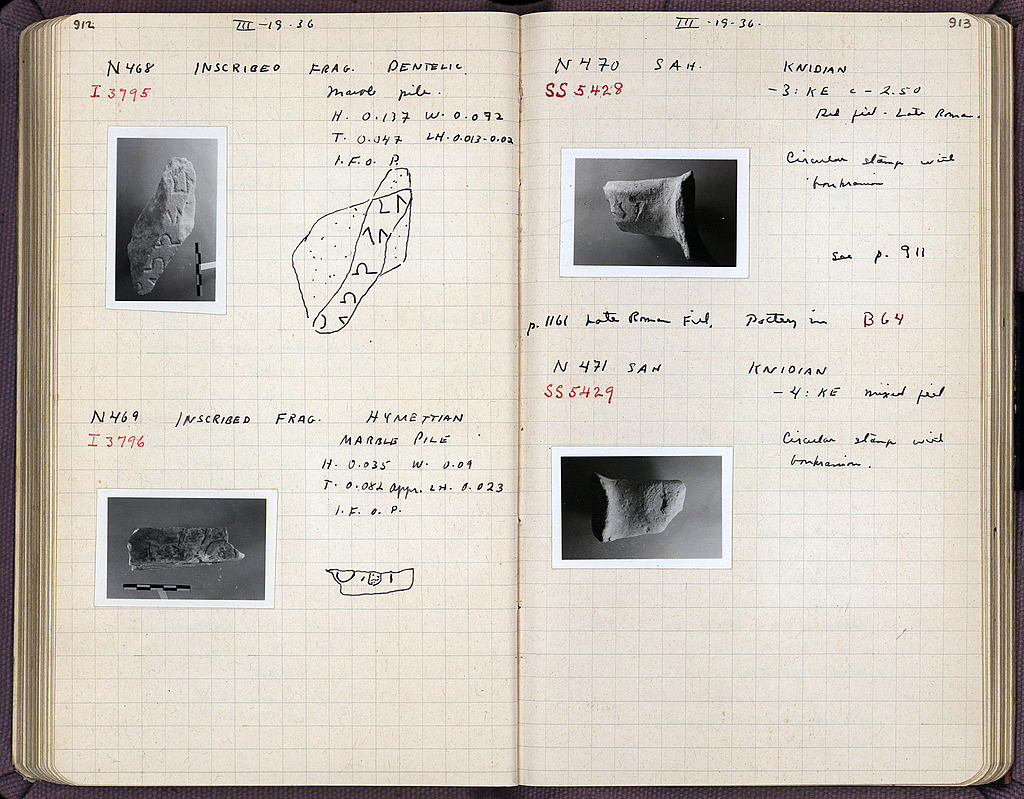 912
III -19-36
N 468 INSCRIBED FRAG. PENTELIC
I 3795 Marble pile.
H. 0.137 W. 0.092
T. 0.047 LH. 0.013-0.02
I. F. O. P.
N 469 INSCRIBED FRAG. HYMETTIAN
I 3796 MARBLE PILE
H. 0.035 W. 0.09
T. 0.082 appr. LH. 0.023
I. F. O. P.
III -19-36.
913
N 470 SAH. KNIDIAN
SS 5428 -3: KE c - 2.50
Red fill - Late Roman.
Circular stamp with
boukranion
see p. 911
p. 1161 Late Roman Fill, Pottery in B 64
N 471 SAH KNIDIAN
SS 5429 - 4: KE mixed fill
Circular stamp with
boukranion.